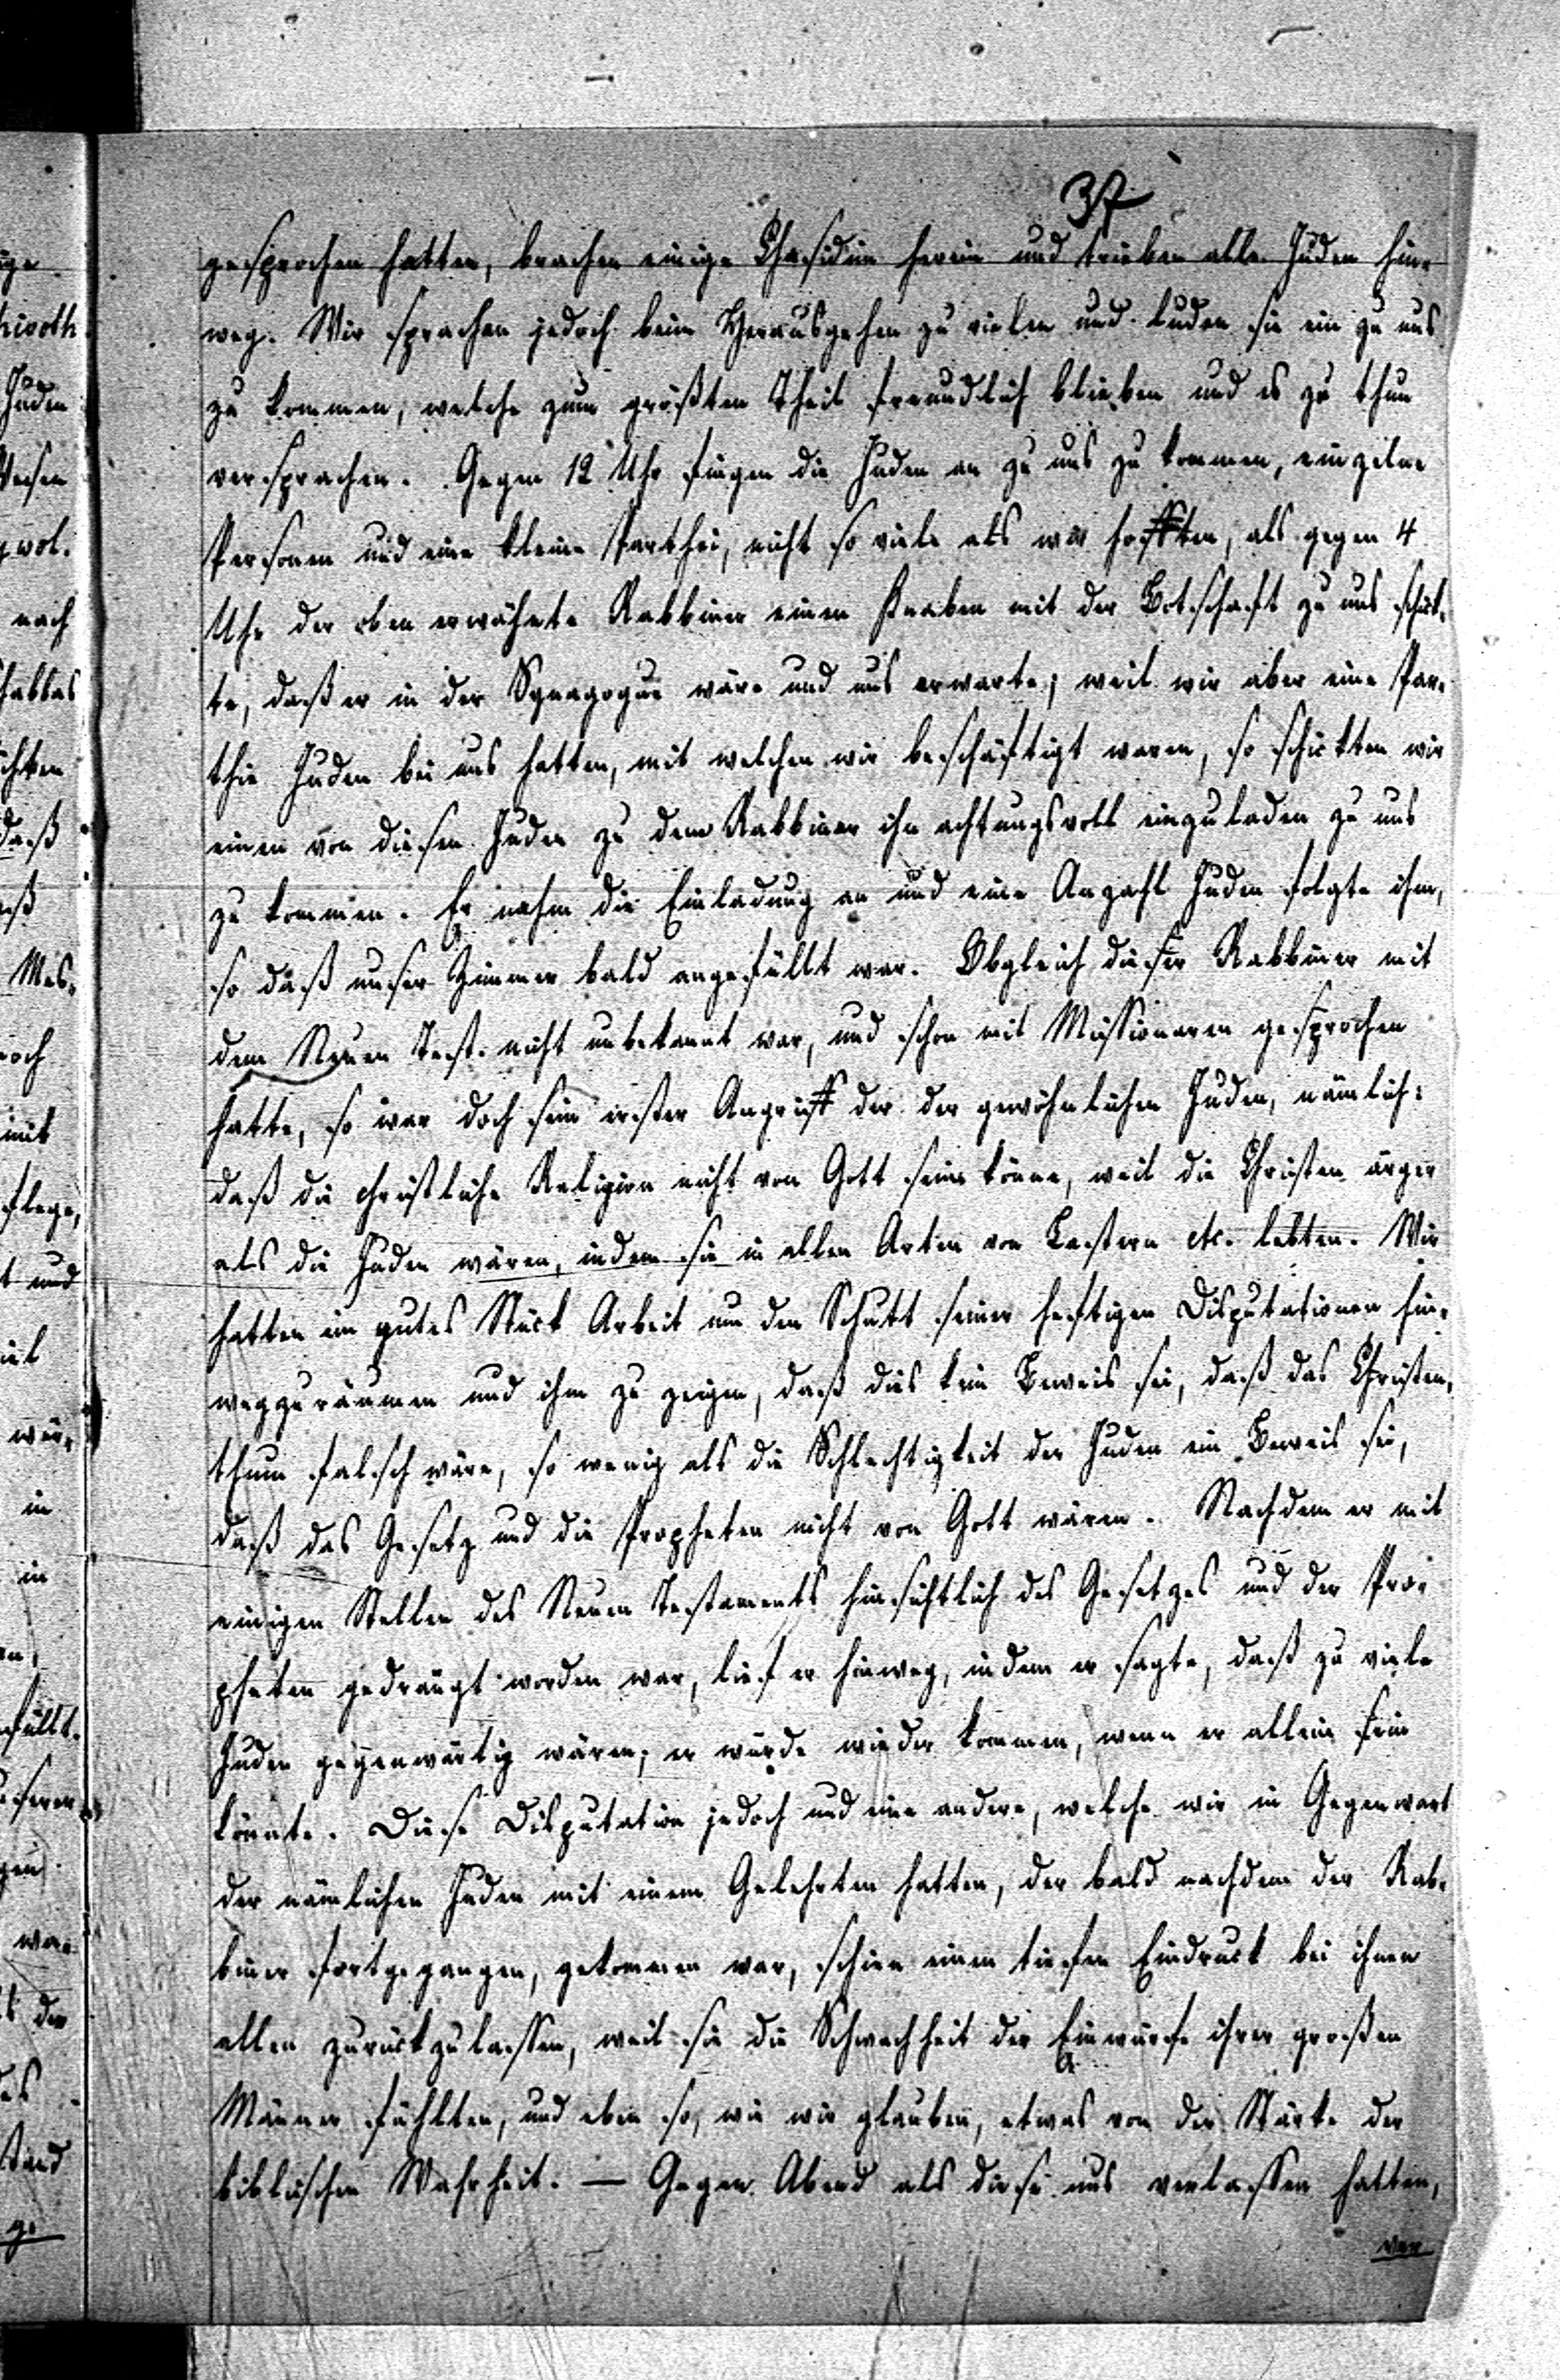 37
gesprochen hatten, brachen einige Chasidim herein und trieben alle Juden hin-
weg. Wir sprachen jedoch beim Herausgehen zu vielen und luden sie ein zu uns
zu kommen, welche zum größten Theil freundlich blieben und es zu thun
versprachen. Gegen 12 Uhr fingen die Juden an zu uns zu kommen, einzelne
Personen und eine kleine Parthei, nicht so viele als wir hofften, als gegen 4
Uhr der oben erwähnte Rabbiner einen Knaben mit der Botschaft zu uns schik-
te, daß er in der Synagogue wäre und uns erwarte; weil wir aber eine Par-
thie Juden bei uns hatten, mit welchen wir beschäftigt waren, so schickten wir
einen von diesen Juden zu dem Rabbiner ihn achtungsvoll einzuladen zu uns
zu kommen. Er nahm die Einladung an und eine Anzahl Juden folgte ihm,
so daß unser Zimmer bald angefüllt war. Obgleich dieser Rabbiner mit
dem Neuen Test. nicht unbekannt war, und schon mit Missionaren gesprochen
hatte, so war doch sein erster Angriff der der gewöhnlichen Juden, nämlich:
daß die christliche Religion nicht von Gott sein könne, weil die Christen ärger
als die Juden wären, indem sie in allen Arten von Lastern etc. lebten. Wir
hatten ein gutes Stück Arbeit um den Schutt seiner heftigen Disputationen hin-
wegzuräumen und ihm zu zeigen, daß dies kein Beweis sei, daß das Christen-
thum falsch wäre, so wenig als die Schlechtigkeit der Juden ein Beweis sei,
daß das Gesetz und die Propheten nicht von Gott wären. Nachdem er mit
einigen Stellen des Neuen Testaments hinsichtlich des Gesetzes und der Pro-
pheten gedrängt worden war, lief er hinweg, indem er sagte, daß zu viele
Juden gegenwärtig wären; er würde wieder kommen, wenn er allein sein
könnte. Diese Disputation jedoch und eine andere, welche wir in Gegenwart
der nämlichen Juden mit einem Gelehrten hatten, der bald nachdem der Rab-
biner fortgegangen, gekommen war, schien einen tiefen Eindruck bei ihnen
allen zurückzulassen, weil sie die Schwachheit der Einwürfe ihrer großen
Männer fühlten, und eben so, wie wir glauben, etwas von der Stärke der
biblischen Wahrheit. — Gegen Abend als diese uns verlassen hatten,